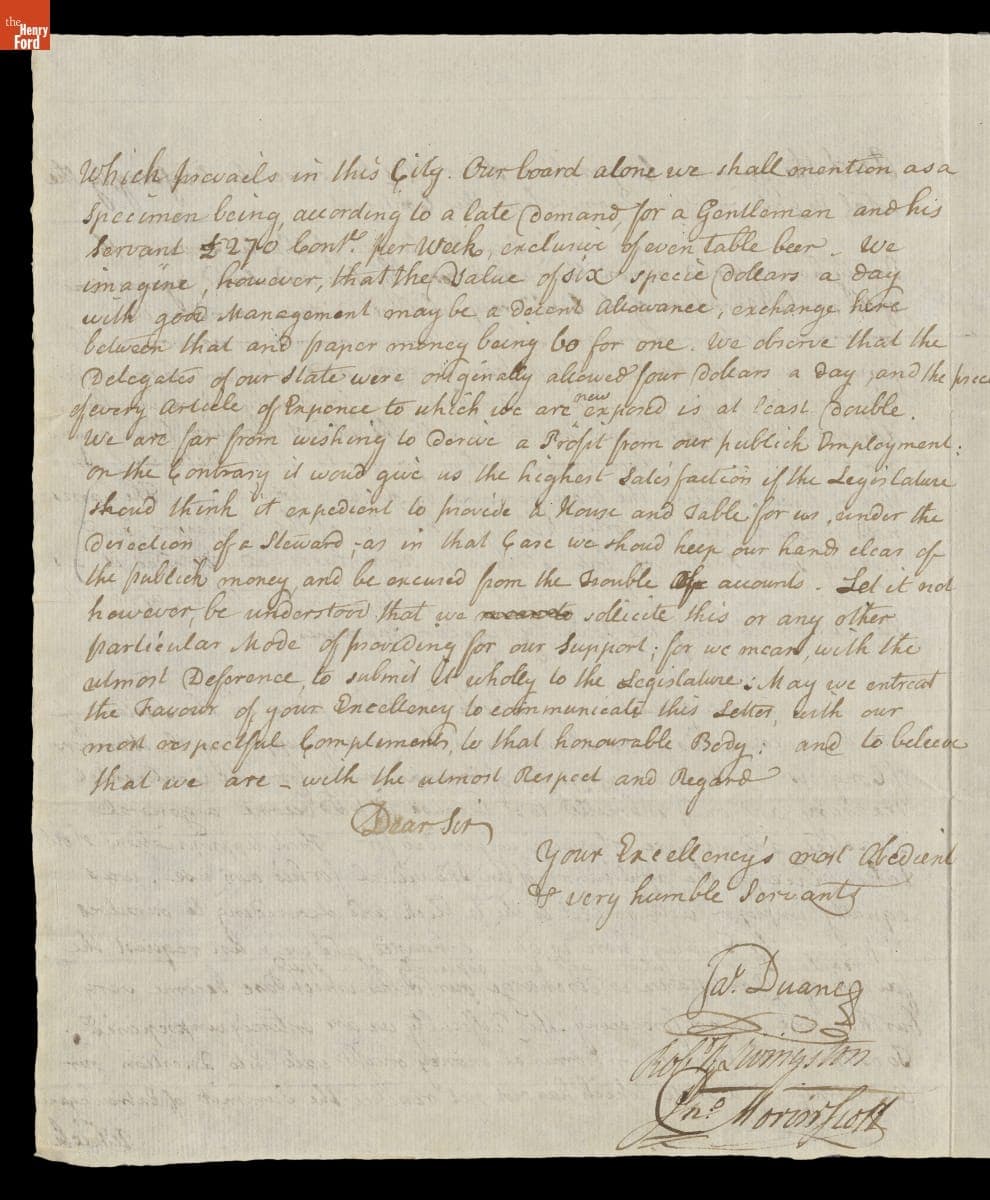 the Henry Ford
Which prevails in this City. Our board alone we shall mention as a
Specimen being, according to a late Demand, for a Gentleman and his
Servant £270 Cont. per Week, exclusive of even table beer. We
imagine, however, that the Value of six specie Dollars a day
with good Management may be a decent Allowance, exchange here
between that and paper money being 60 for one. We observe that the
Delegates of our State were originally allowed four Dollars a Day, and the price
of every Article of Expence to which we are now exposed is at least Double.
We are far from wishing to derive a Profit from our publick Employment:
on the Contrary it woud give us the highest Satisfaction if the Legislature
shoud think it expedient to provide a House and Table for us, under the
Direction of a Steward, as in that Case we shoud keep our hands clear of
the publick money, and be excused from the Trouble of accounts. Let it not
however, be understood that we sollicite this or any other
particular Mode of providing for our Support; for we mean, with the
utmost Deference, to submit it wholly to the Legislature: May we entreat
the Favour of your Excellency to communicate this Letter, with our
most respectful Compliments, to that honourable Body: and to beleive
that we are - with the utmost Respect and Regard
Dear Sir
Your Excellency's most Obedient
& very humble Servants
Jas. Duane
Robt R Livingston
Jno Morin Scott